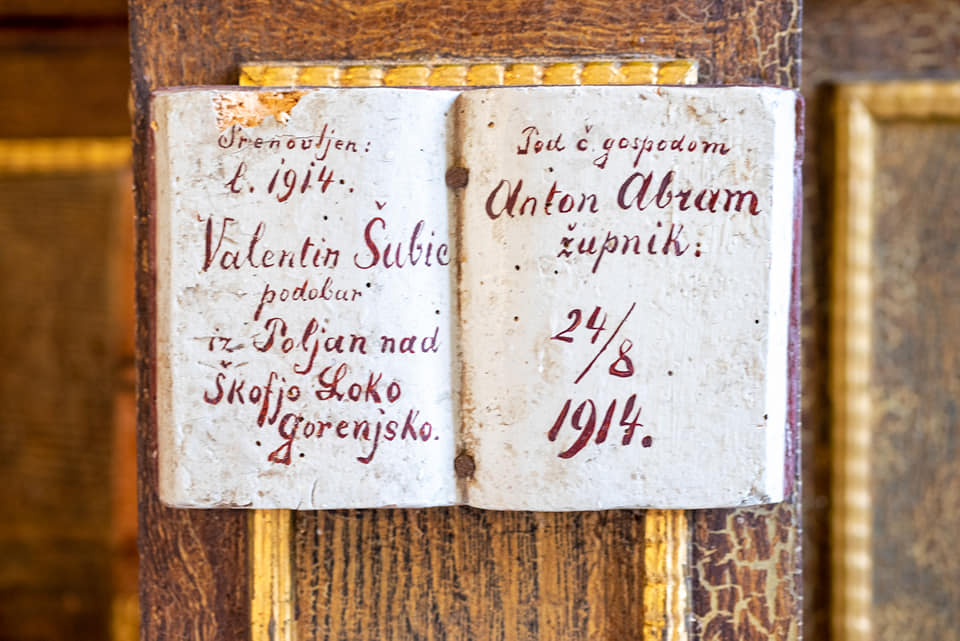 Prenovljen:
l. 1914.
Valentin Šubic
podobar
iz Poljan nad
Škofjo Loko
gorenjsko.
Pod č. gospodom
Anton Abram
župnik:
24/8
1914.